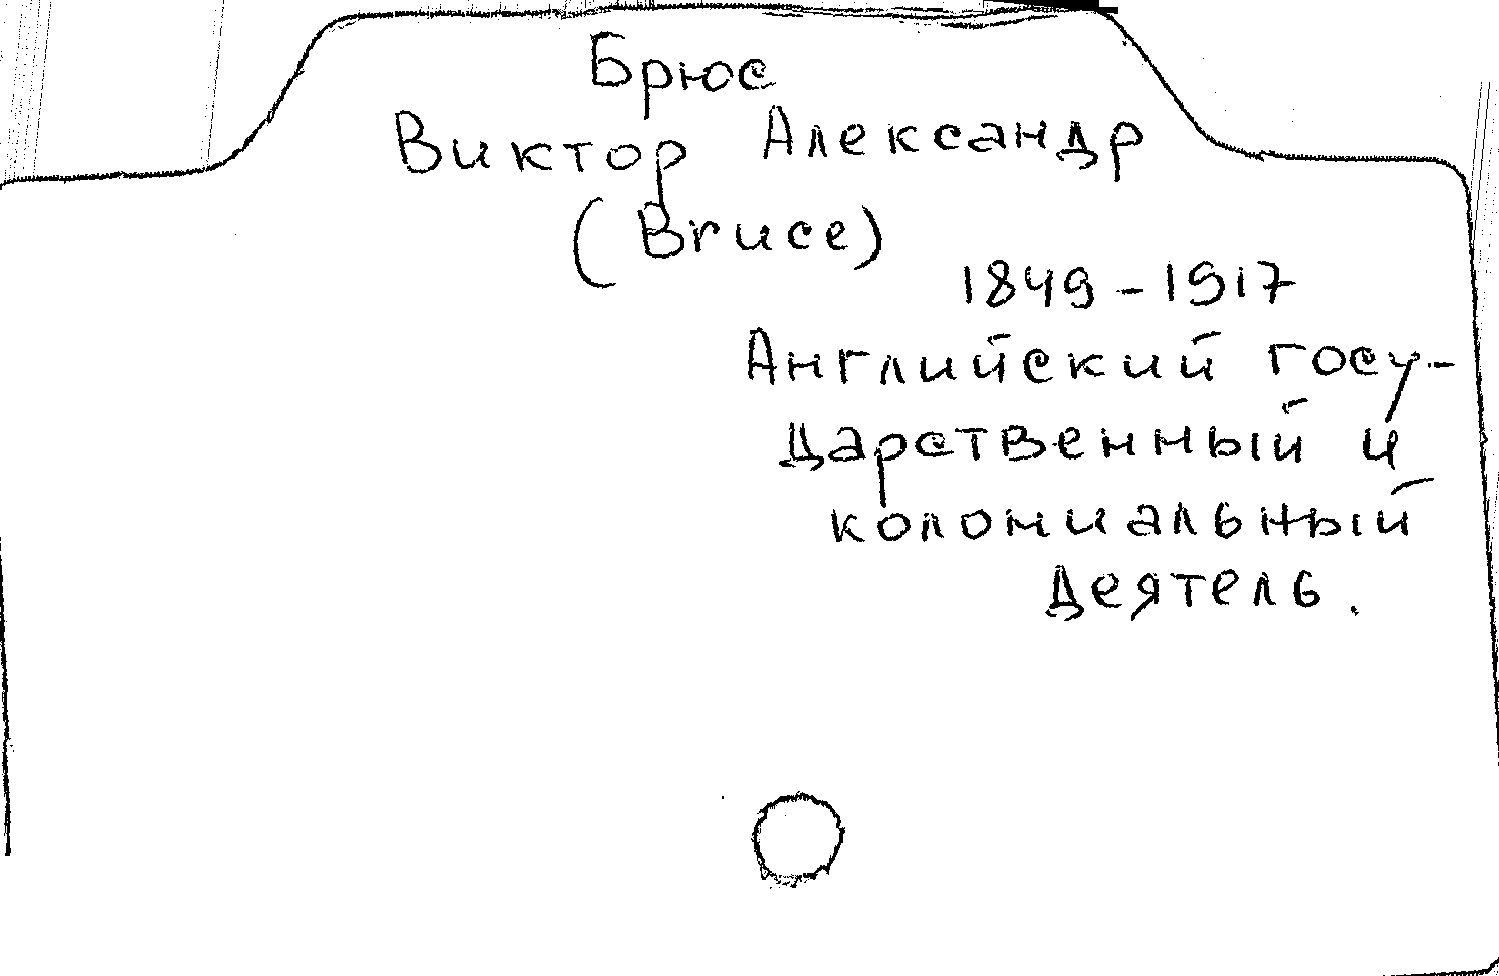 Брюс
Виктор Александр
(Bruce)
1849-1917
Английский госу-
дарственный и
колониальный
деятель.